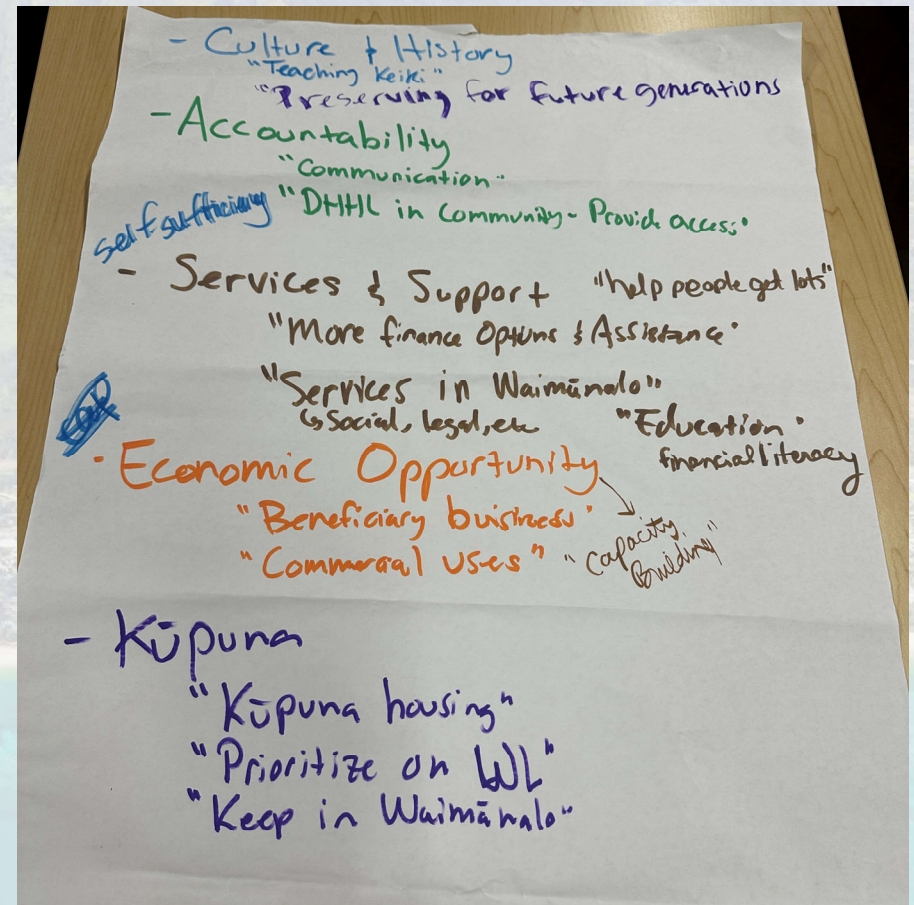 - Culture & History
"Teaching Keiki"
"Preserving for future generations
- Accountability
"Communication"
self sufficiency "DHHL in Community - Provide access"
- Services & Support "help people get lots"
"More finance Options & Assistance"
"Services in Waimānalo"
↳ Social, legal, etc "Education"
financial literacy
- Economic Opportunity
"Beneficiary buisiness"
"Commercial uses" "Capacity
Building"
- Kūpuna
"Kūpuna housing"
"Prioritize on WL"
"Keep in Waimānalo"